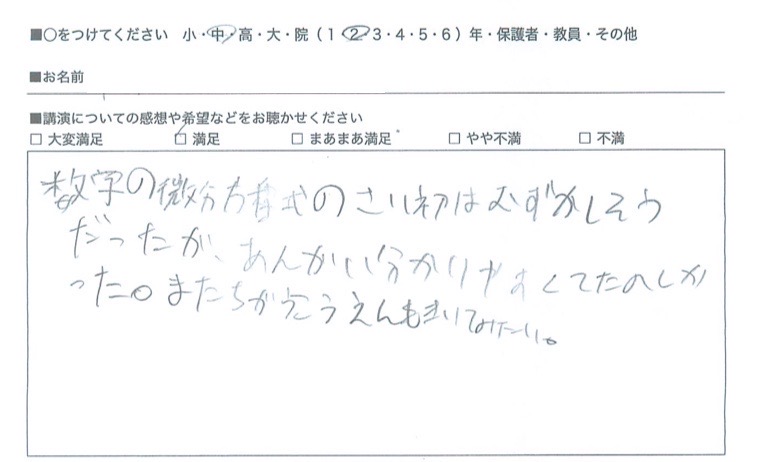 ■○をつけてください 小・中・高・大・院（1・2・3・4・5・6）年・保護者・教員・その他
■お名前
■講演についての感想や希望などをお聴かせください
□ 大変満足 □ 満足 □ まあまあ満足 □ やや不満 □ 不満
数学の微分方程式のさい初はむずかしそう
だったが、あんがい分かりやすくてたのしか
った。またちがうこうえんもきいてみたい。